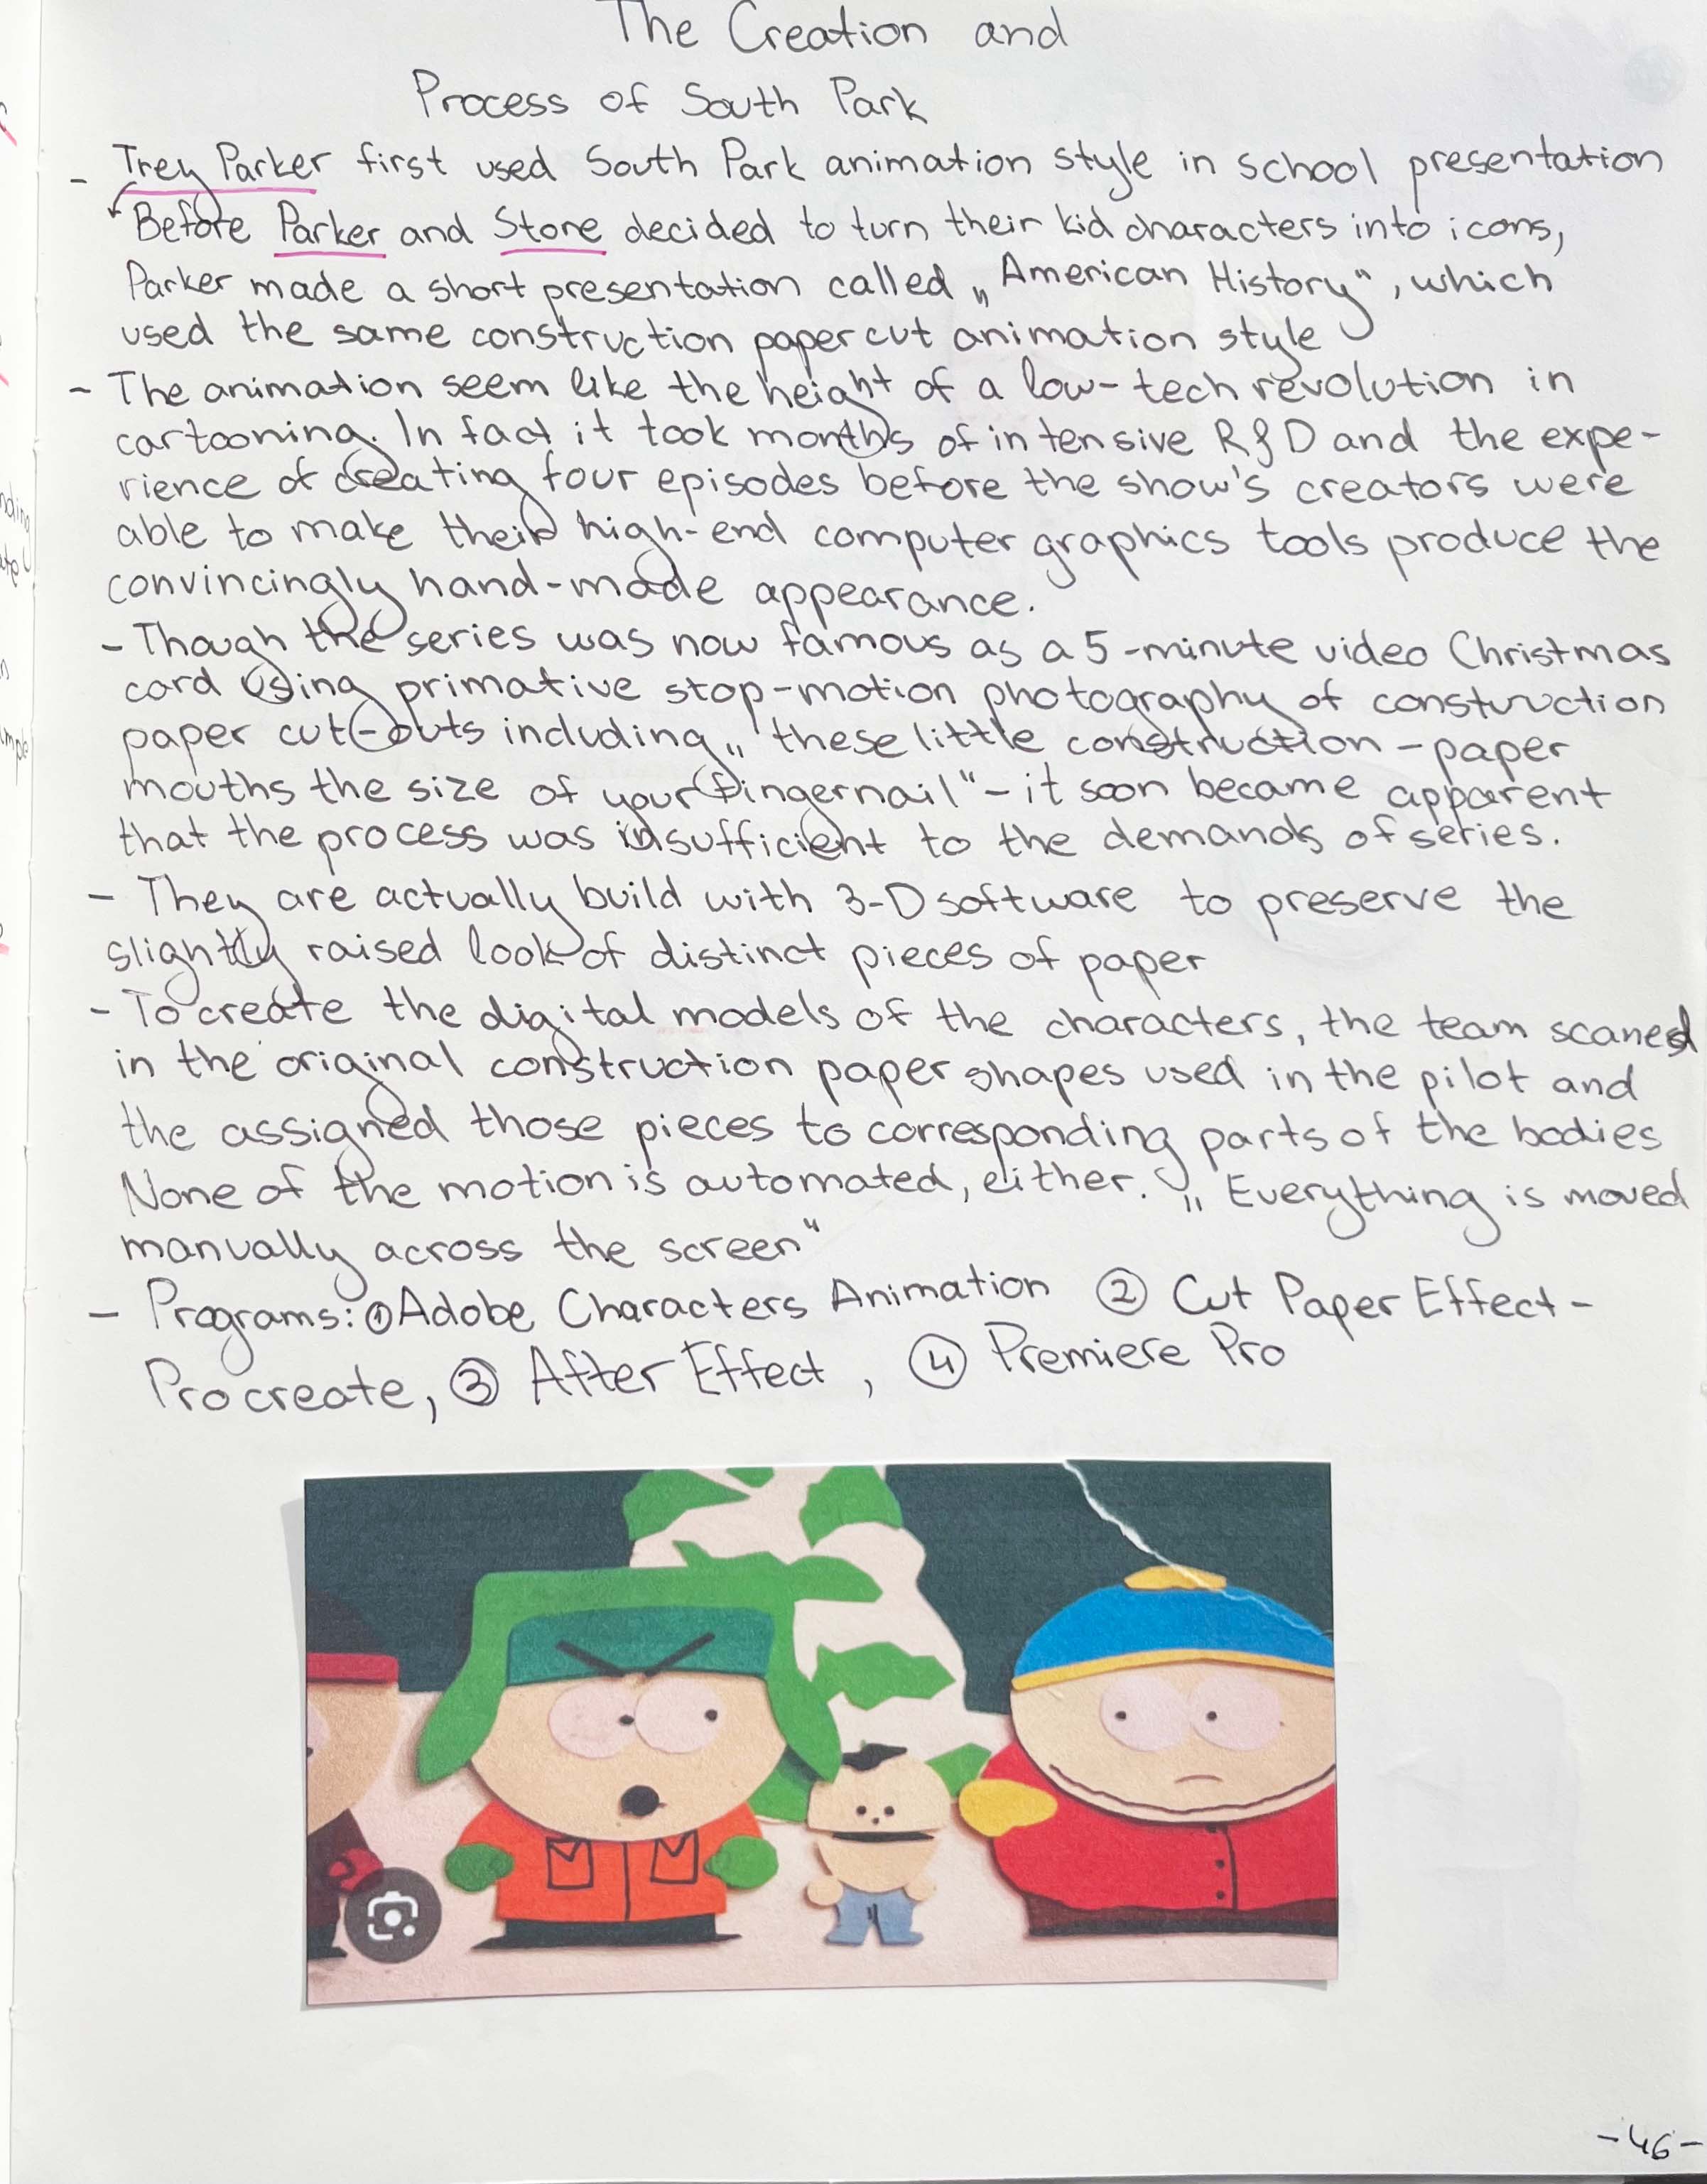 The Creation and
Process of South Park
- Trey Parker first used South Park animation style in school presentation
Before Parker and Store decided to turn their kid characters into icons,
Parker made a short presentation called „American History", which
used the same construction paper cut animation style
- The animation seem like the height of a low-tech revolution in
cartooning. In fact it took months of intensive R&D and the expe-
rience of creating four episodes before the show's creators were
able to make their high-end computer graphics tools produce the
convincingly hand-made appearance.
- Though the series was now famous as a 5-minute video Christmas
card using primative stop-motion photography of construction
paper cut-outs including „these little construction-paper
mouths the size of your fingernail" - it soon became apparent
that the process was insufficient to the demands of series.
- They are actually build with 3-D software to preserve the
slightly raised look of distinct pieces of paper
- To create the digital models of the characters, the team scaned
in the original construction paper shapes used in the pilot and
the assigned those pieces to corresponding parts of the bodies
None of the motion is automated, either. „Everything is moved
manually across the screen"
- Programs: ① Adobe Characters Animation ② Cut Paper Effect-
Procreate, ③ After Effect, ④ Premiere Pro
-46-